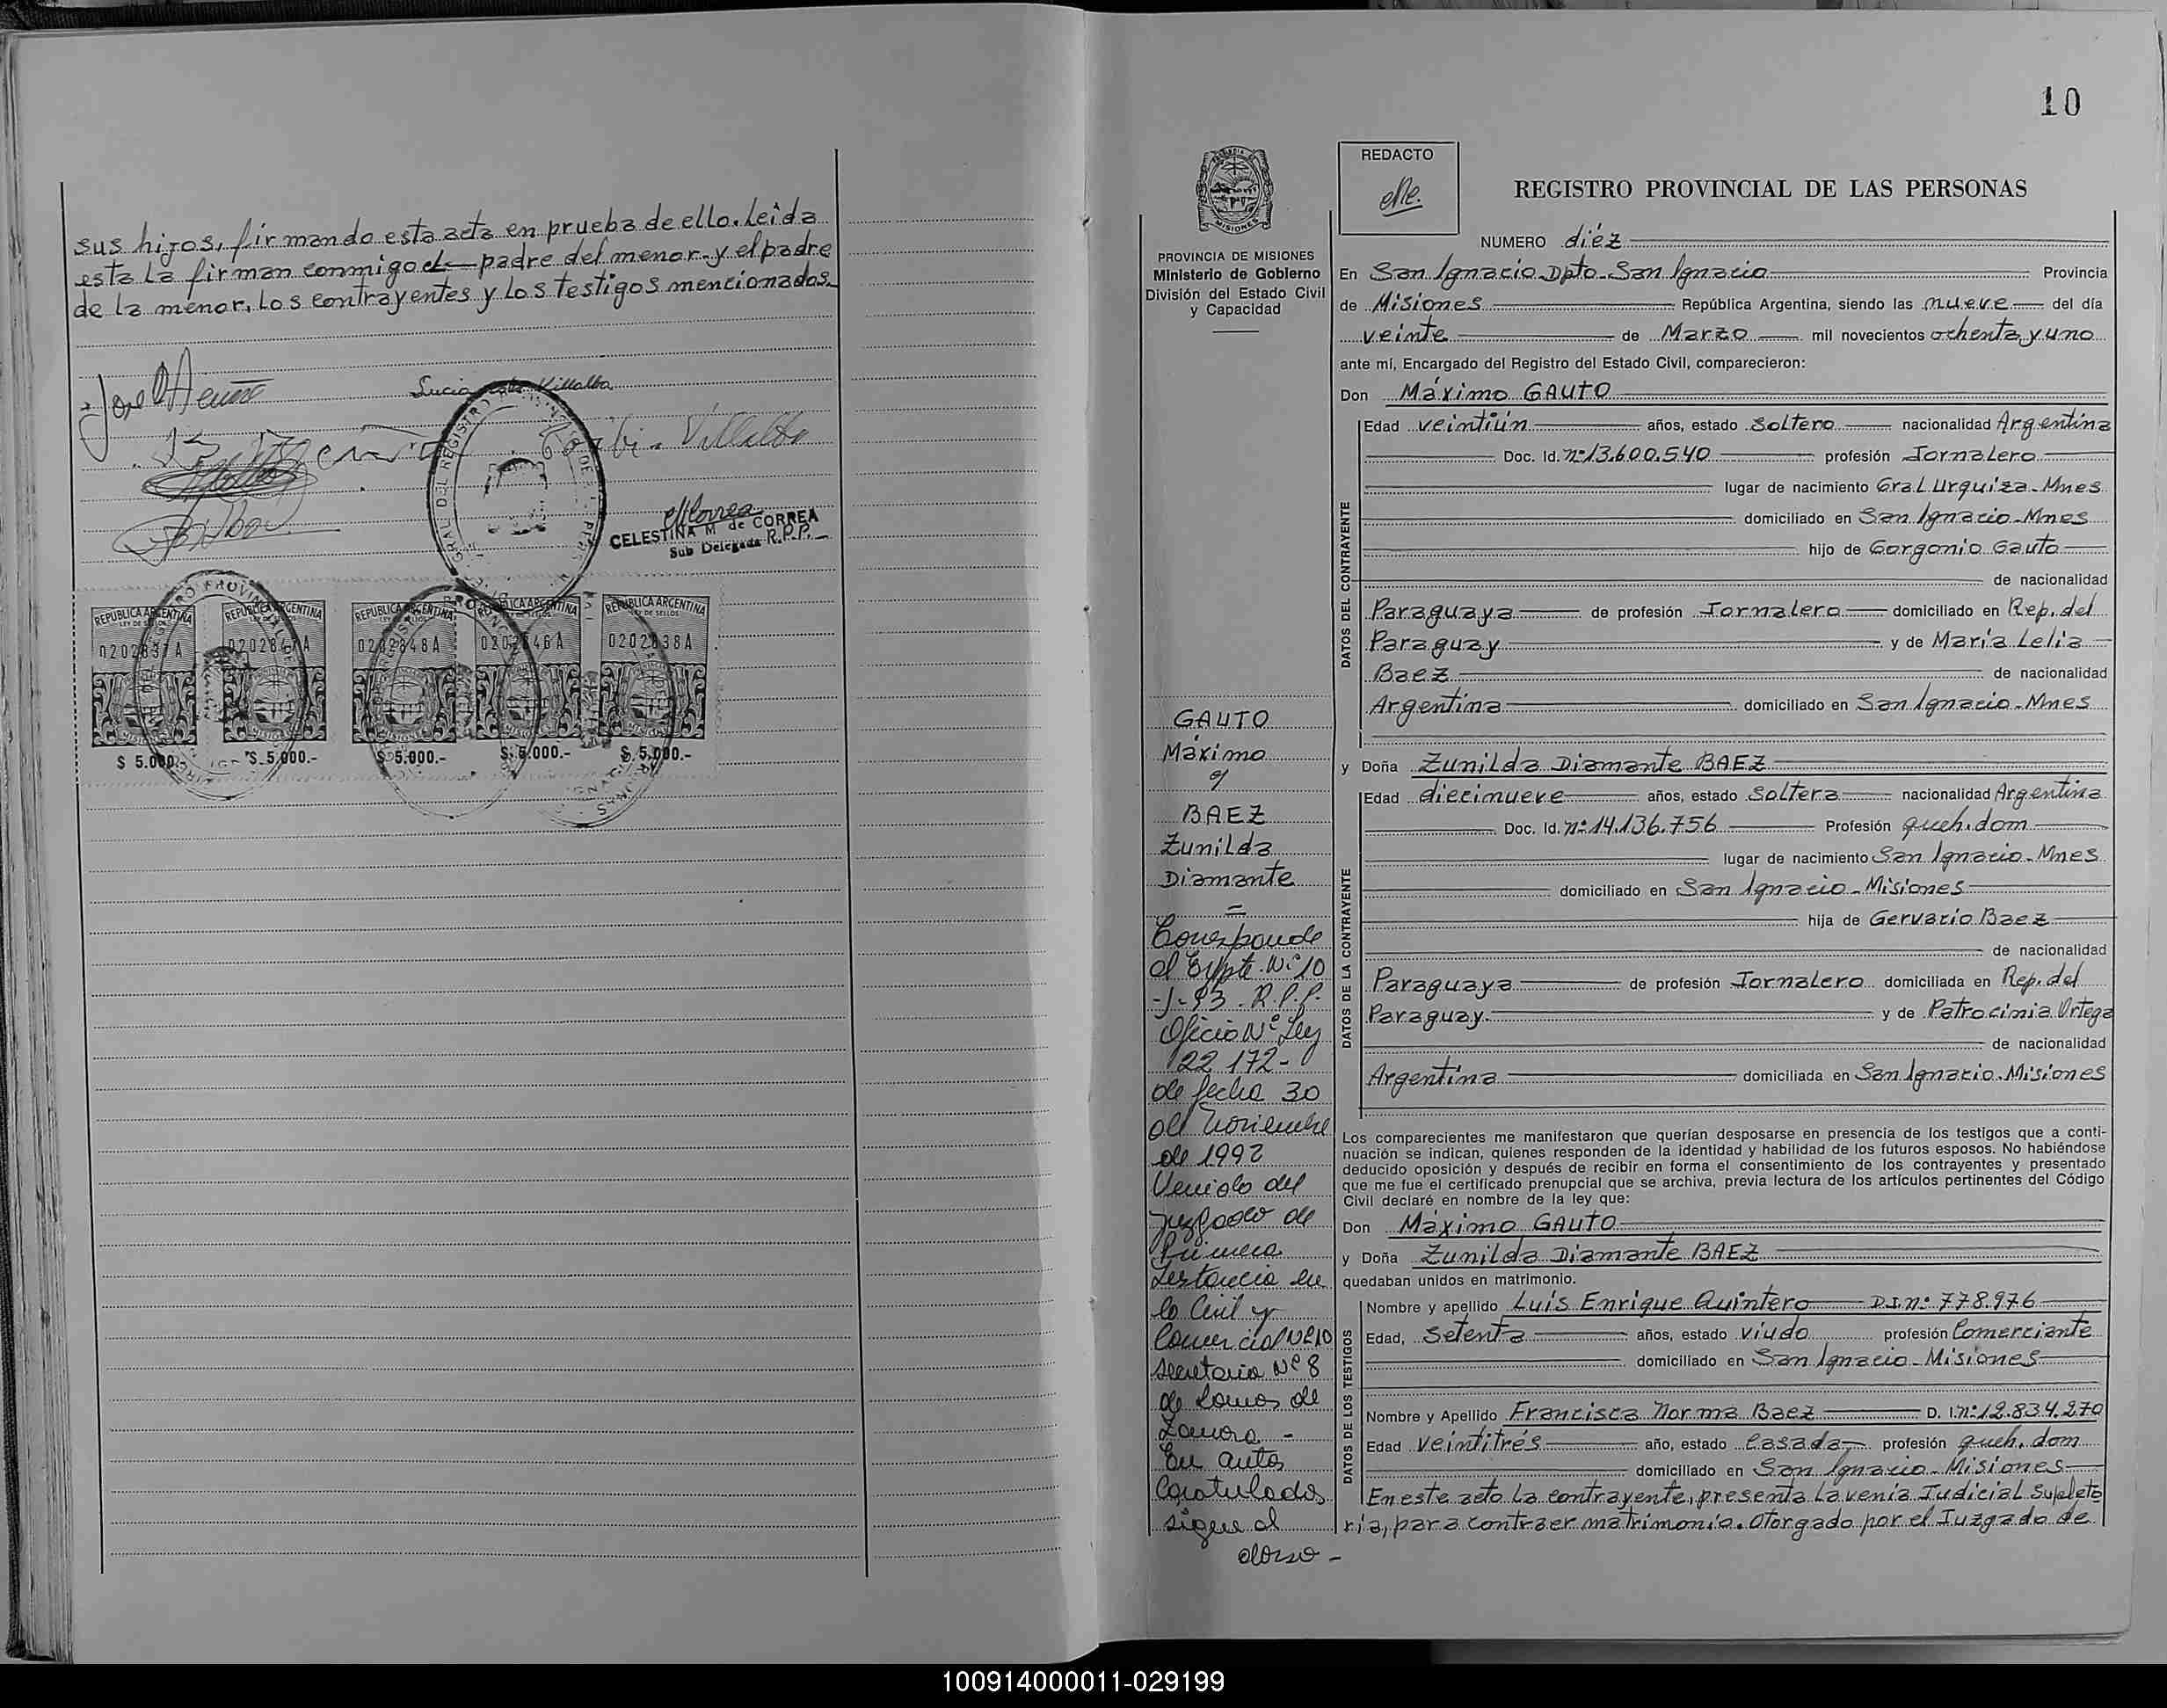 sus hijos, firmando esta acta en prueba de ello. Leída
esta la firman conmigo el padre del menor y el padre
de la menor, Los contrayentes y Los testigos mencionados.
Lucia Villalba
Villalba
CELESTINA M de CORREA
Sub Delegada R.P.P.
REPUBLICA ARGENTINA REPUBLICA ARGENTINA REPUBLICA ARGENTINA REPUBLICA ARGENTINA REPUBLICA ARGENTINA
LEY DE SELLOS
0202837A 0202847A 0202848A 0202846A 0202838A
$ 5.000.- $ 5.000.- $ 5.000.- $ 5.000.- $ 5.000.-
10
REDACTO
REGISTRO PROVINCIAL DE LAS PERSONAS
PROVINCIA DE MISIONES
Ministerio de Gobierno
División del Estado Civil
y Capacidad
GAUTO
Máximo
c/
BAEZ
Zunilda
Diamante
=
Corresponde
al Expte. Nº 10
-J-93. R.P.P.
Oficio Nº Ley
22.172-
de fecha 30
de Noviembre
de 1992
Venido del
Juzgado de
Primera
Instancia en
lo Civil y
Comercial Nº 10
Secretaria Nº 8
de Lomas de
Zamora -
En autos
Caratulados
sigue al
dorso -
NUMERO diéz
En San Ignacio Dpto. San Ignacio Provincia
de Misiones República Argentina, siendo las nueve del día
veinte de Marzo mil novecientos ochenta y uno
ante mí, Encargado del Registro del Estado Civil, comparecieron:
Don Máximo GAUTO
DATOS DEL CONTRAYENTE
Edad veintiún años, estado Soltero nacionalidad Argentina
Doc. Id. nº 13.600.540 profesión Jornalero
lugar de nacimiento Gral Urquiza - Mnes
domiciliado en San Ignacio - Mnes
hijo de Gorgonio Gauto
de nacionalidad
Paraguaya de profesión Jornalero domiciliado en Rep. del
Paraguay y de María Lelia
Baez de nacionalidad
Argentina domiciliado en San Ignacio - Mnes
y Doña Zunilda Diamante BAEZ
DATOS DE LA CONTRAYENTE
Edad diecinueve años, estado Soltera nacionalidad Argentina
Doc. Id. nº 14.136.756 Profesión queh. dom
lugar de nacimiento San Ignacio - Mnes
domiciliado en San Ignacio - Misiones
hija de Gervacio Baez
de nacionalidad
Paraguaya de profesión Jornalero domiciliada en Rep. del
Paraguay. y de Patrocinia Ortega
de nacionalidad
Argentina domiciliada en San Ignacio. Misiones
Los comparecientes me manifestaron que querían desposarse en presencia de los testigos que a conti-
nuación se indican, quienes responden de la identidad y habilidad de los futuros esposos. No habiéndose
deducido oposición y después de recibir en forma el consentimiento de los contrayentes y presentado
que me fue el certificado prenupcial que se archiva, previa lectura de los artículos pertinentes del Código
Civil declaré en nombre de la ley que:
Don Máximo GAUTO
y Doña Zunilda Diamante BAEZ
quedaban unidos en matrimonio.
DATOS DE LOS TESTIGOS
Nombre y apellido Luis Enrique Quintero D.I. nº 778.976
Edad, Setenta años, estado viudo profesión Comerciante
domiciliado en San Ignacio - Misiones
Nombre y Apellido Francisca Norma Baez D. I. nº 12.834.270
Edad veintitrés año, estado casada profesión queh. dom
domiciliado en San Ignacio - Misiones
En este acto La contrayente, presenta La venia Judicial Supleto
ria, para contraer matrimonio. Otorgado por el Juzgado de
100914000011-029199